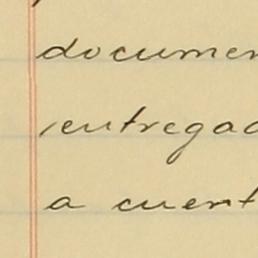 documen
entregad
a cuent